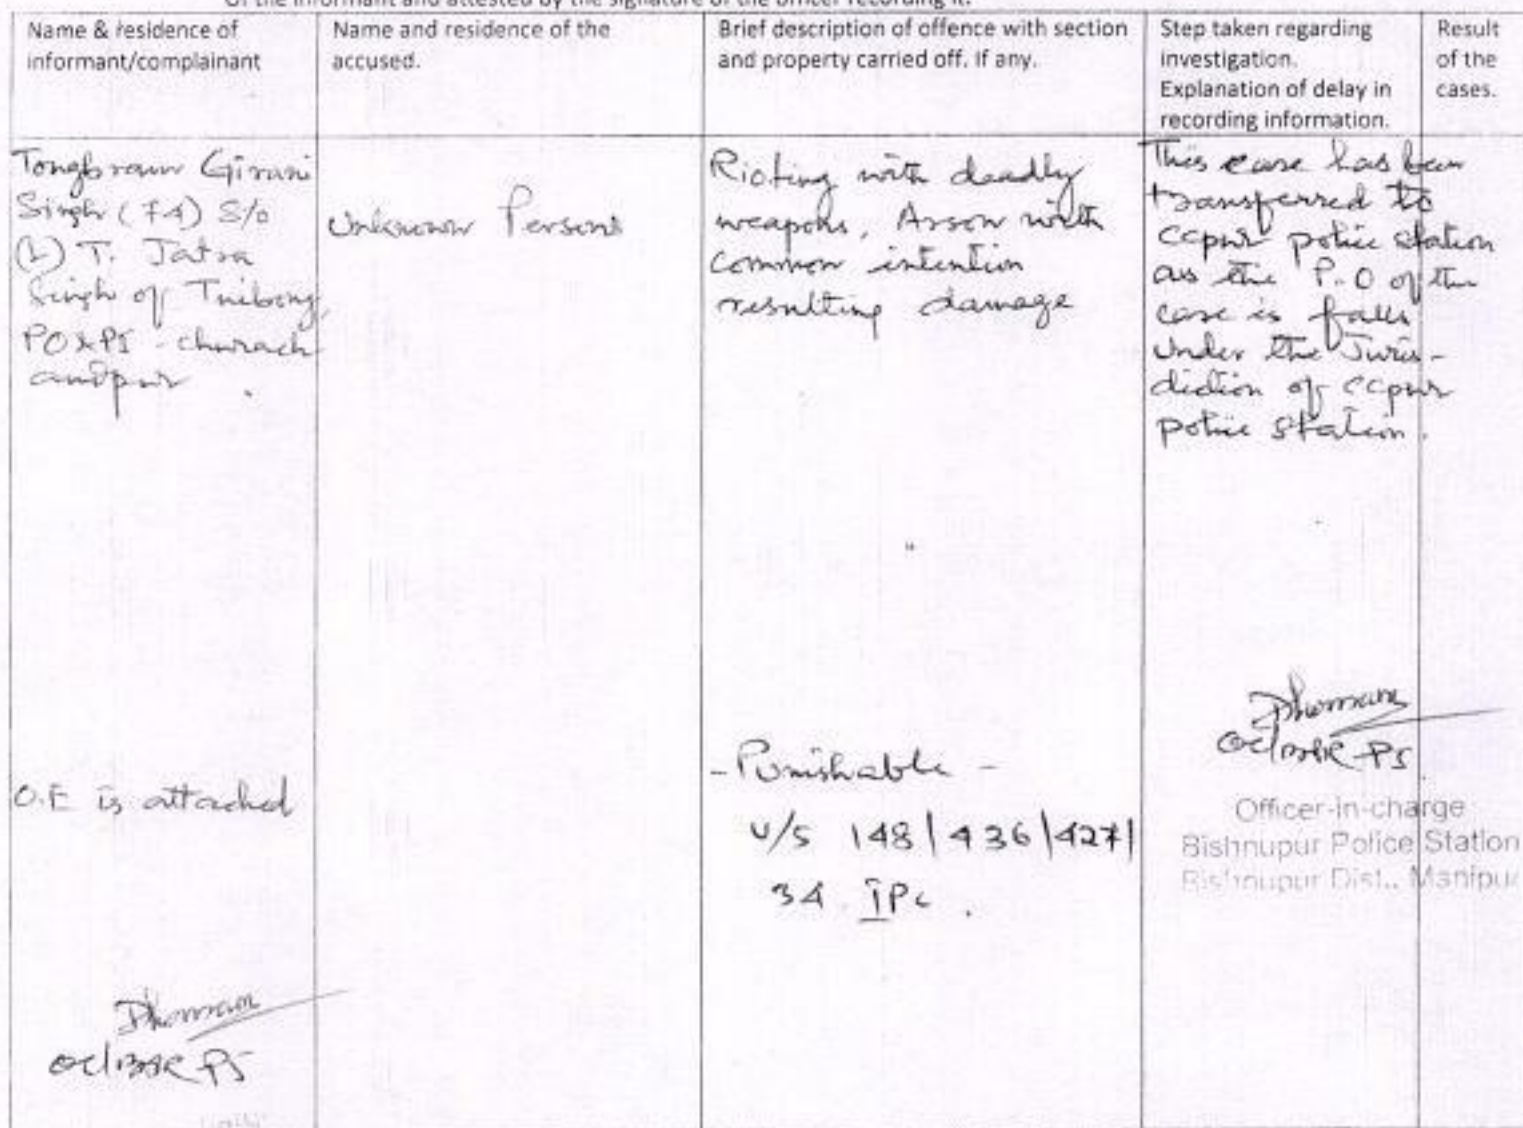 Of the informant and attested by the signature of the officer recording it.
Name & residence of
informant/complainant
Name and residence of the
accused.
Brief description of offence with section
and property carried off. If any.
Step taken regarding
investigation.
Explanation of delay in
recording information.
Result
of the
cases.
Tongbram Girani
Singh (74) S/o
(L) T. Jatra
Singh of Tuibong,
PO & PS - churach
andpur
O.E is attached
OC/BSR PS
Unknown Persons
Rioting with deadly
weapons, Arson with
common intention
resulting damage
- Punishable -
U/S 148|436|427|
34 IPC.
This case has been
transferred to
ccpur police station
as the P.O of the
case is falls
under the Juris-
diction of ccpur
police station.
OC/BSR-PS
Officer-in-charge
Bishnupur Police Station
Bishnupur Dist., Manipur